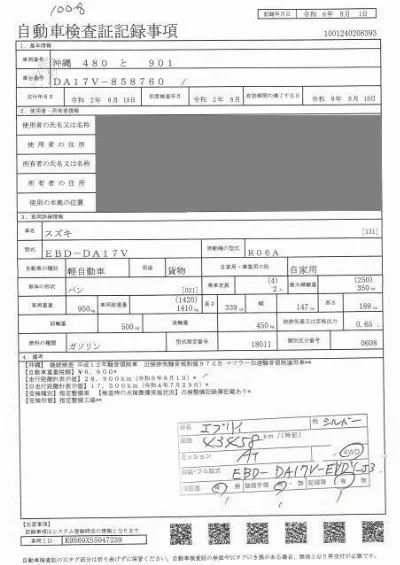 1008
記録年月日 令和 6年 8月 1日
自動車検査証記録事項
1001240208393
1.基本情報
車両番号 沖縄 480 と 901
車台番号 DA17V-858760
交付年月日 令和 2年 6月18日 初度検査年月 令和 2年 6月 有効期間の満了する日 令和 8年 8月18日
2.使用者・所有者情報
使用者の氏名又は名称
使用者の住所
所有者の氏名又は名称
所有者の住所
使用の本拠の位置
3.車両詳細情報
車名 スズキ [131]
型式 EBD-DA17V 原動機の型式 R06A
自動車の種別 軽自動車 用途 貨物 自家用・事業用の別 自家用
車体の形状 バン [021] 乗車定員 (4) 2人 最大積載量 (250) 350kg
車両重量 950kg 車両総重量 (1420) 1410kg 長さ 339cm 幅 147cm 高さ 189cm
前軸重 500kg 後軸重 450kg 総排気量又は定格出力 0.65L
燃料の種類 ガソリン 型式指定番号 18011 類別区分番号 0608
4.備考
【沖縄】 継続検査 平成12年騒音規制車 近接排気騒音規制値97dB マフラー加速騒音規制適用車**
【自動車重量税額】¥6,600*
【走行距離計表示値】28,900km(令和6年8月1日)*
【旧走行距離計表示値】17,500km(令和4年7月29日)*
【受検種別】指定整備車 【検査時の点検整備実施状況】点検整備記録簿記載あり*
【受検形態】指定整備工場**
車名 エブリイ 色 シルバー
43458 km/(特記)
ミッション AT 4WD
認証・フル型式 EBD-DA17V-
有 無 記録簿 有 無
【注意事項】
車両ID K9569X35047239